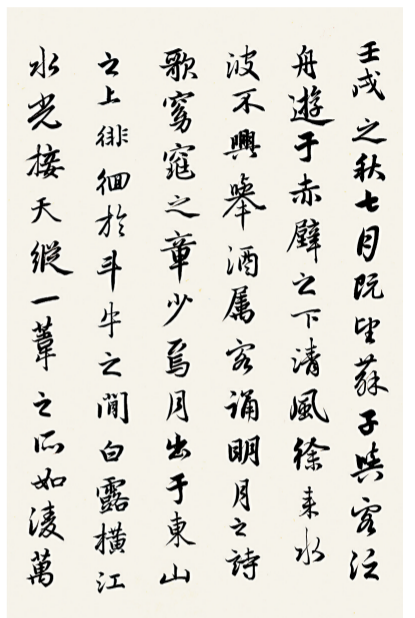 壬戌之秋七月既望蘇子與客泛
舟遊于赤壁之下清風徐来水
波不興舉酒属客誦明月之詩
歌窈窕之章少焉月出于東山
之上徘徊於斗牛之間白露橫江
水光接天縱一葦之所如淩萬